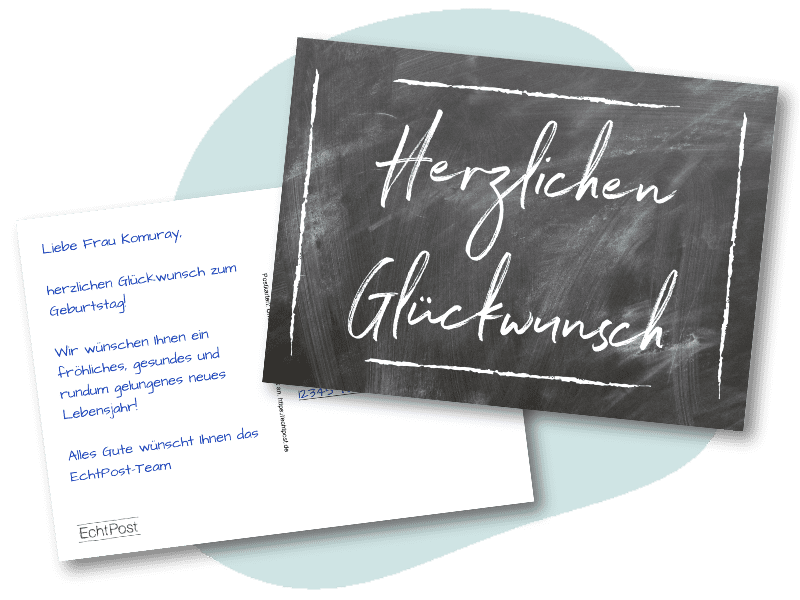 Herzlichen
Glückwunsch
Liebe Frau Komuray,
herzlichen Glückwunsch zum
Geburtstag!
Wir wünschen Ihnen ein
fröhliches, gesundes und
rundum gelungenes neues
Lebensjahr!
Alles Gute wünscht Ihnen das
EchtPost-Team
EchtPost
Postkarten
https://echtpost.de
12345